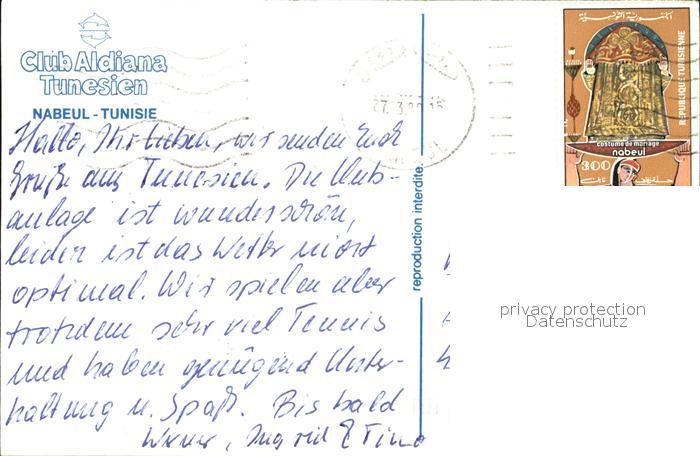 Club Aldiana
Tunesien
NABEUL - TUNISIE
Hallo, Ihr Lieben, wir senden Euch
Grüße aus Tunesien. Die Club-
anlage ist wunderschön,
leider ist das Wetter nicht
optimal. Wir spielen aber
trotzdem sehr viel Tennis
und haben genügend Unter-
haltung u. Spaß. Bis bald
Werner, Ingrid & Timo
reproduction interdite
27.3.80.15
الجمهورية التونسية
REPUBLIQUE TUNISIENNE
costume de mariage
nabeul
300
privacy protection
Datenschutz